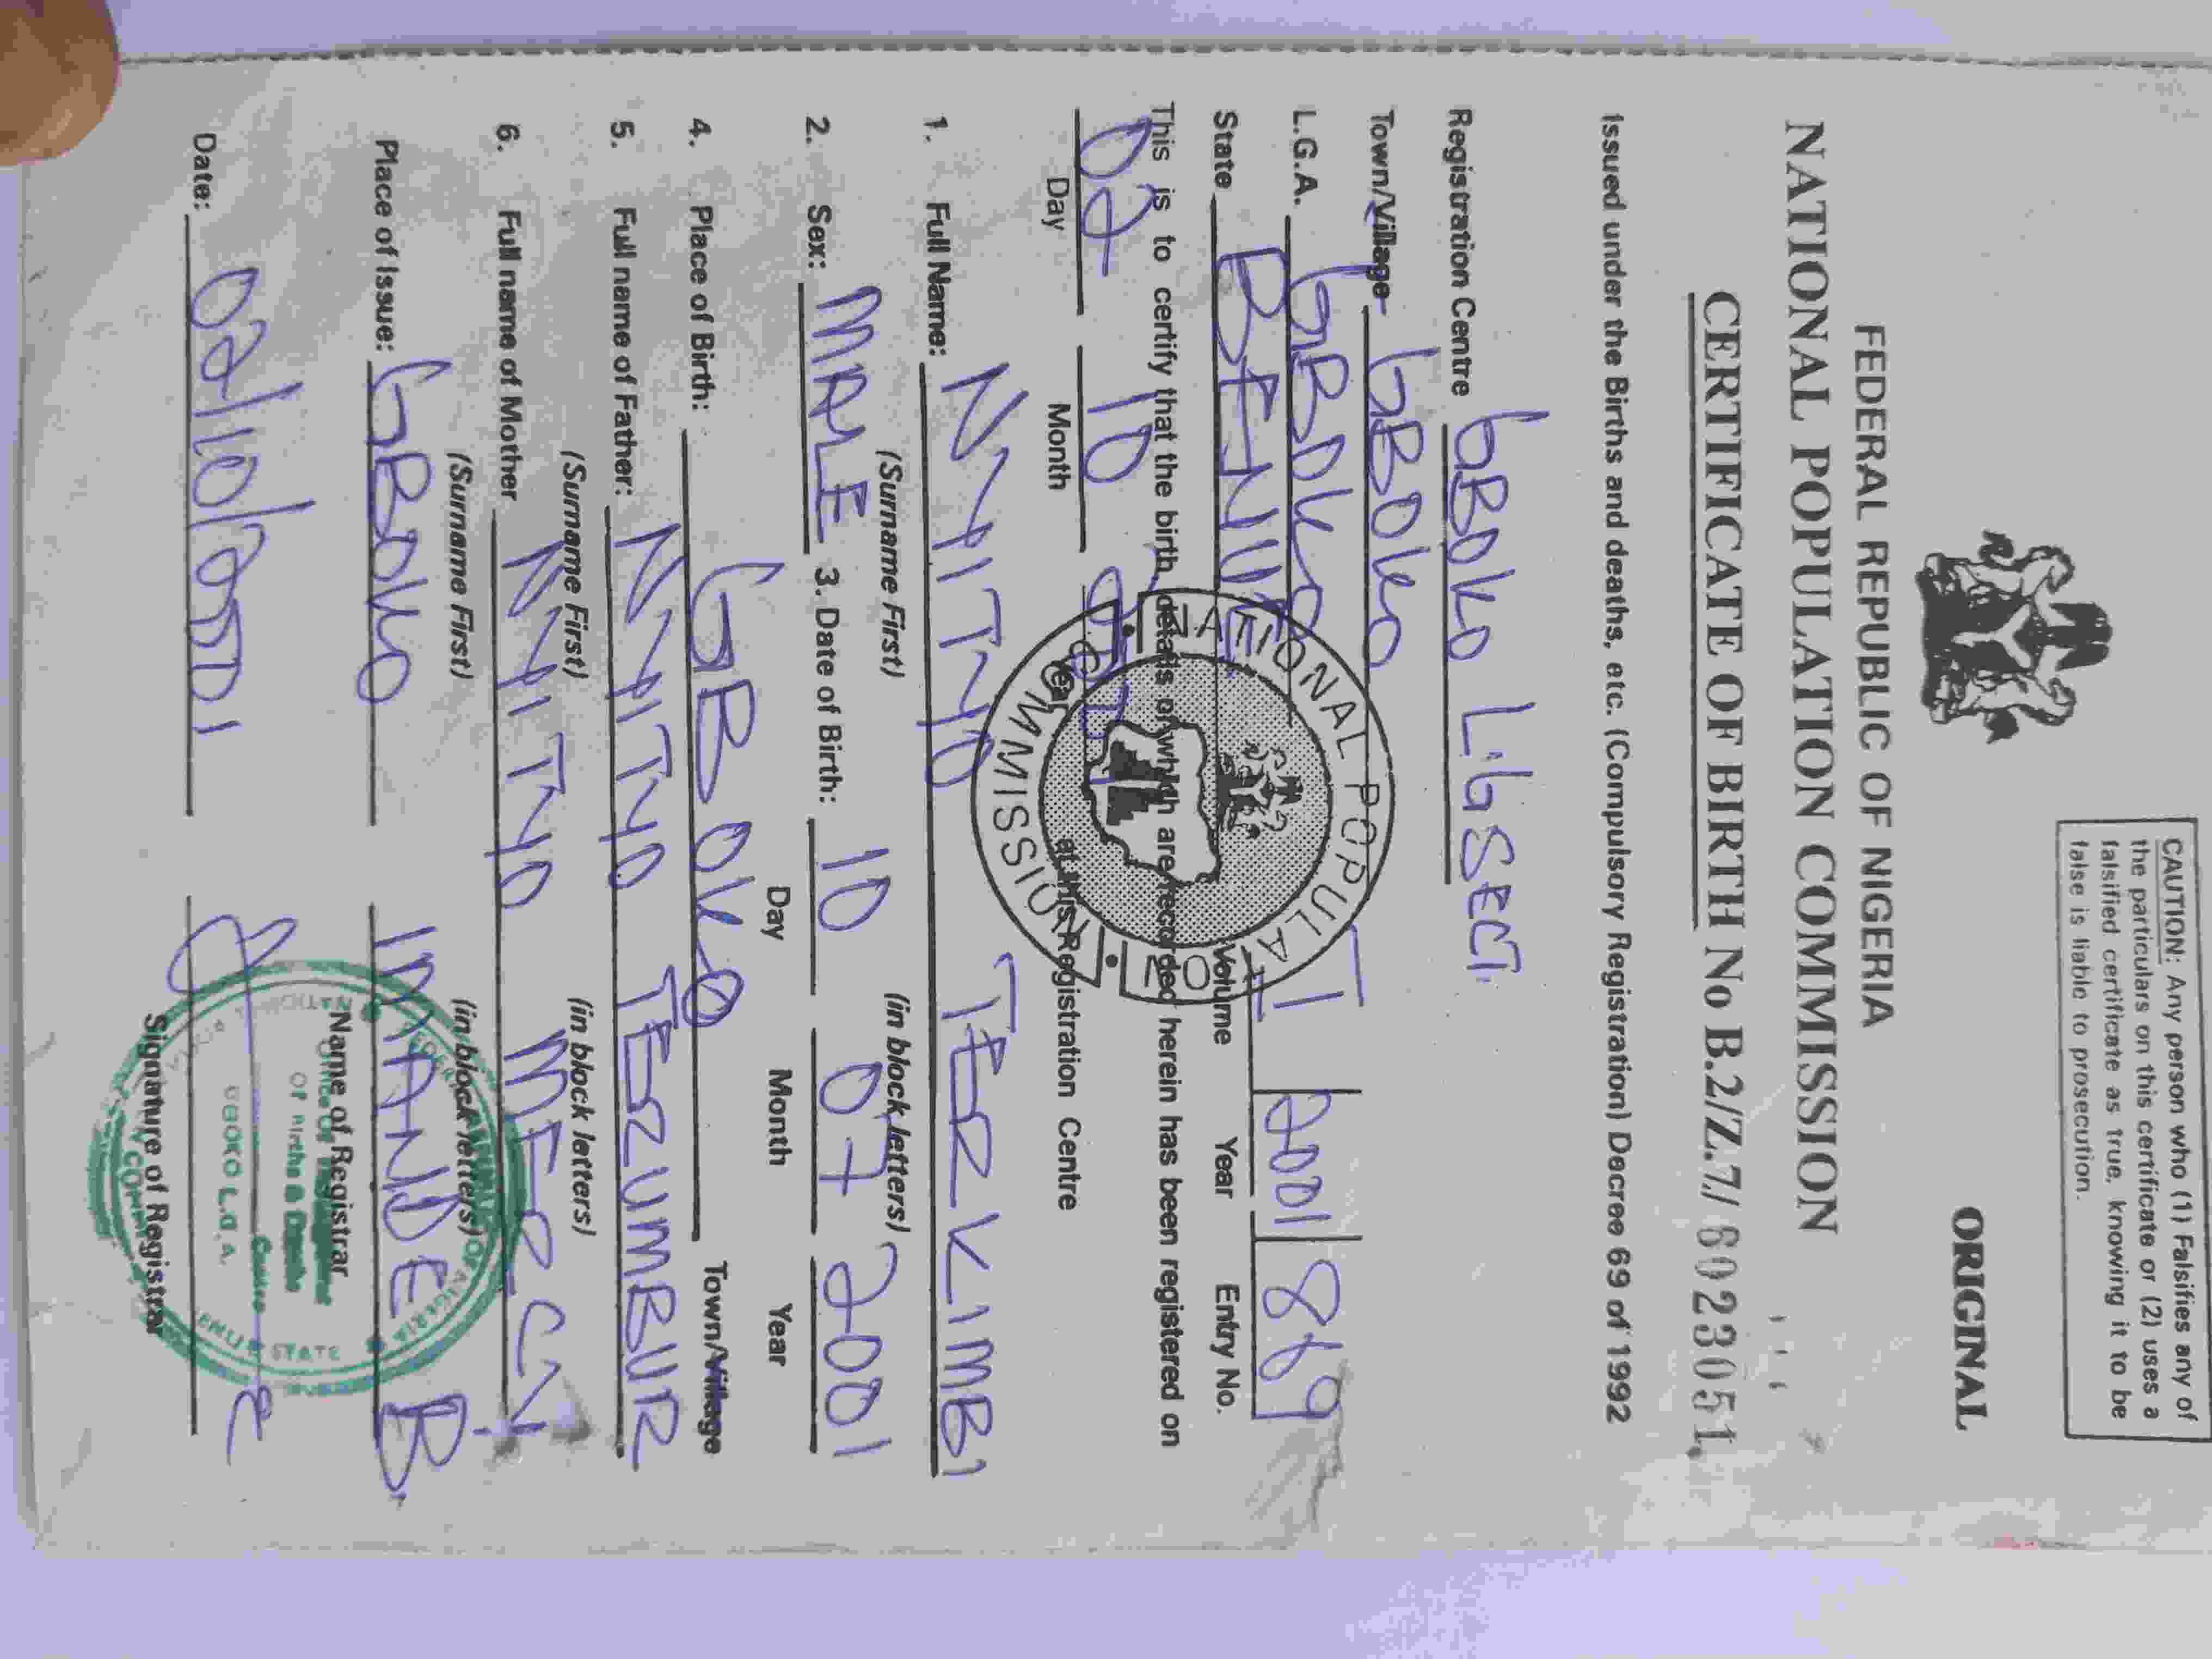 CAUTION: Any person who (1) Falsifies any of
the particulars on this certificate or (2) uses a
falsified certificate as true, knowing it to be
false is liable to prosecution.
ORIGINAL
FEDERAL REPUBLIC OF NIGERIA
NATIONAL POPULATION COMMISSION
CERTIFICATE OF BIRTH No B.2/Z.7/ 6023051
Issued under the Births and deaths, etc. (Compulsory Registration) Decree 69 of 1992
Registration Centre GBOKO L.G SECT.
Town/Village GBOKO
L.G.A. GBOKO 2001 869
State BENUE Volume Year Entry No.
This is to certify that the birth, details of which are recorded herein has been registered on
02 10
Day Month Year at this Registration Centre
NATIONAL POPULATION COMMISSION
1. Full Name: NYITYO TERKIMBI
(Surname First) (in block letters)
2. Sex: MALE 3. Date of Birth: 10 07 2001
Day Month Year
4. Place of Birth: GBOKO Town/Village
5. Full name of Father: NYITYO TERZUMBUR
(Surname First) (in block letters)
6. Full name of Mother NYITYO MERCY
(Surname First) (in block letters)
Place of Issue: GBOKO IMANDE B.
Name of Registrar
Date: 02/10/2001
Signature of Registrar
OF Births &
GBOKO L.G.A.
STATE